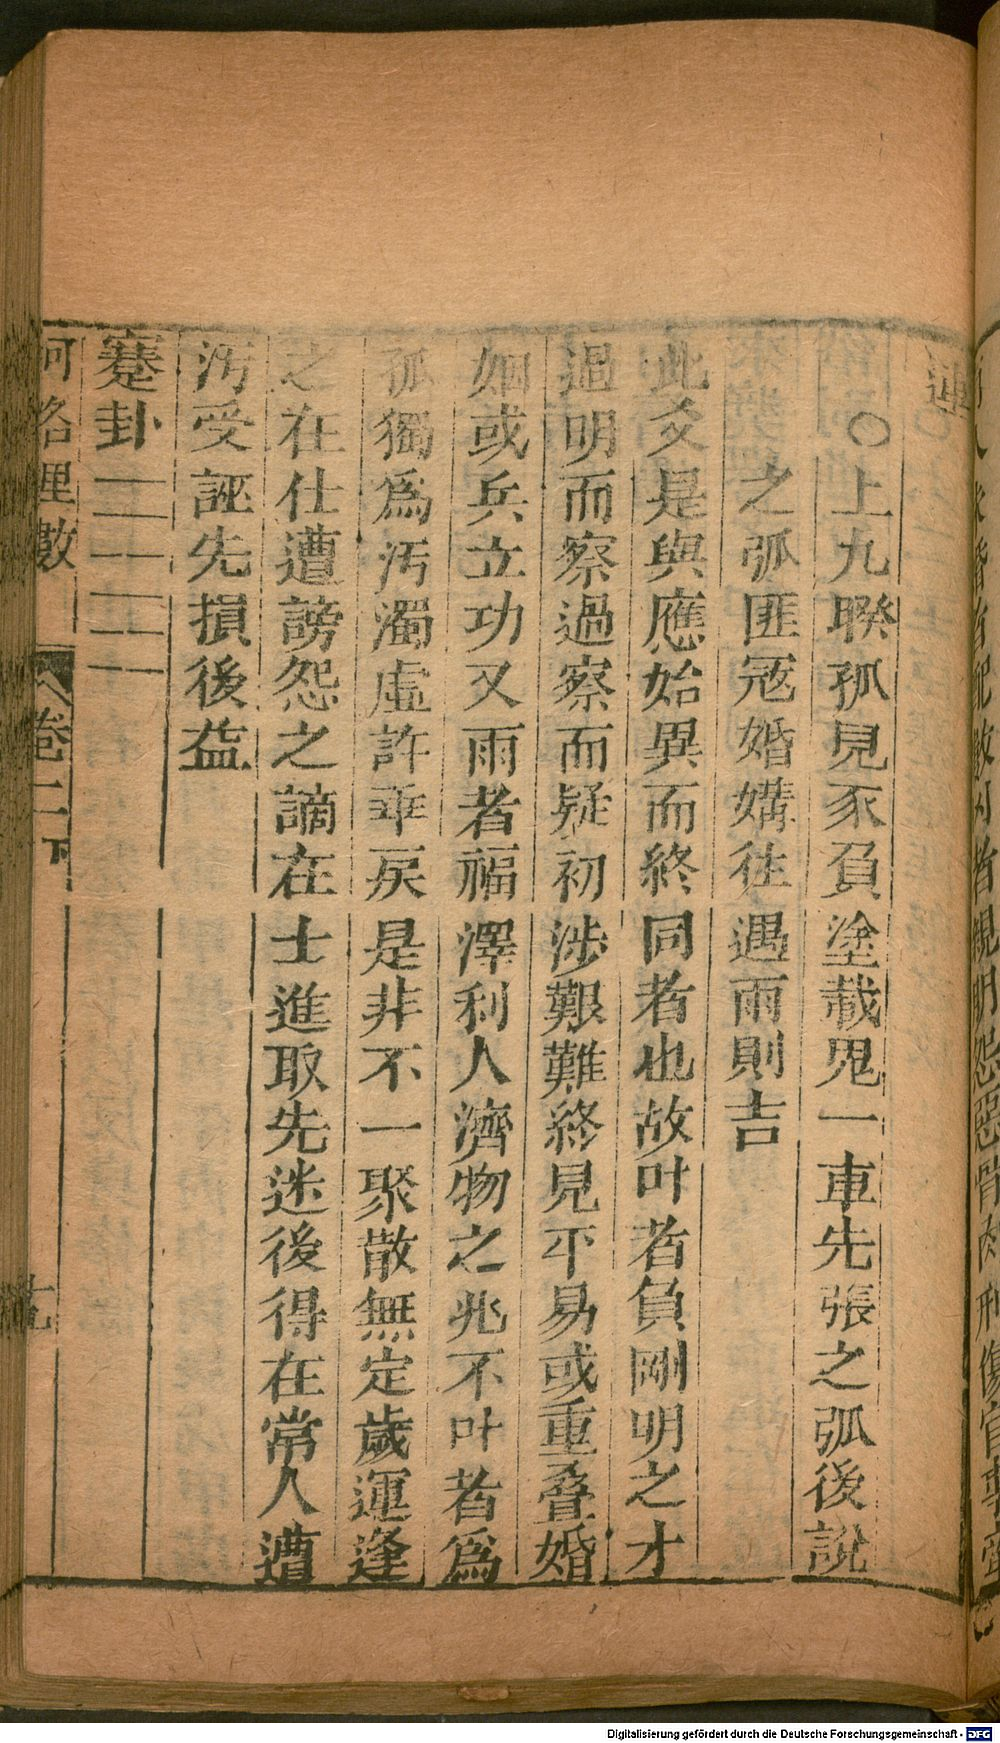 連
○上九睽孤見豕負塗載鬼一車先張之弧後說
之弧匪冦婚媾往遇雨則吉
此爻是與應始異而終同者也故叶者負剛明之才
過明而察過察而疑初涉艱難終見平易或重叠婚
姻或兵立功又雨者福澤利人濟物之兆不叶者爲
孤獨爲汚濁虛詐乖戾是非不一聚散無定歲運逢
之在仕遭謗怨之謫在士進取先迷後得在常人遭
汚受誣先損後益
蹇卦
河洛理數
卷二下
Digitalisierung gefördert durch die Deutsche Forschungsgemeinschaft - DFG